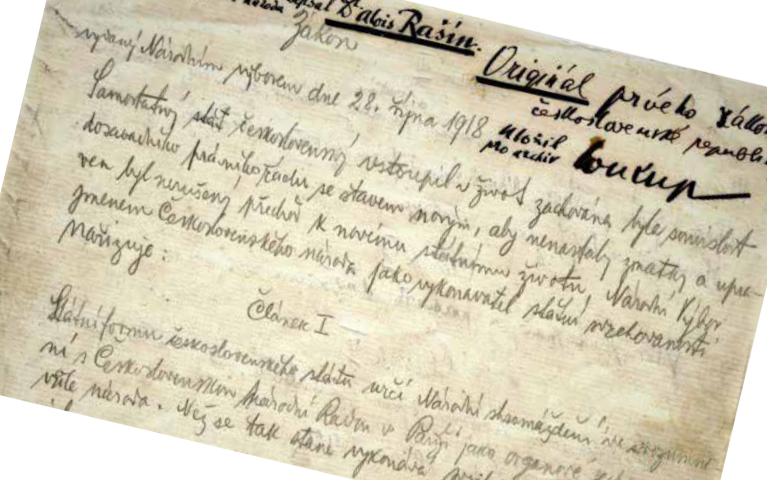 napsal Dr Alois Rašín.
Zákon
Originál prvého zákona
československé republi
vydaný Národním výborem dne 28. října 1918
uložil
pro archiv Soukup
Samostatný stát československý vstoupil v život. zachována byla souvislost
dosavadního právního řádu se stavem novým, aby nenastaly zmatky a upra-
ven byl nerušený přechod k novému státnímu životu, Národní Výbor
jmenem Československého národa jako vykonavatel státní svrchovanosti
nařizuje:
Článek I
Státní formu československého státu určí Národní shromáždění ve srozumě
ní s Československou Národní Radou v Paříži jako organové
vůle národa. Než se tak stane vykonává